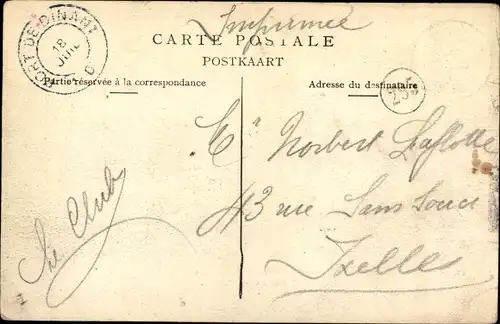 Imprimée
CARTE POSTALE
POSTKAART
FORT DE DINANT
18
Partie réservée à la correspondance
Adresse du destinataire
Norbert Laflotte
43 rue Sans Souci
Ixelles
Le Club